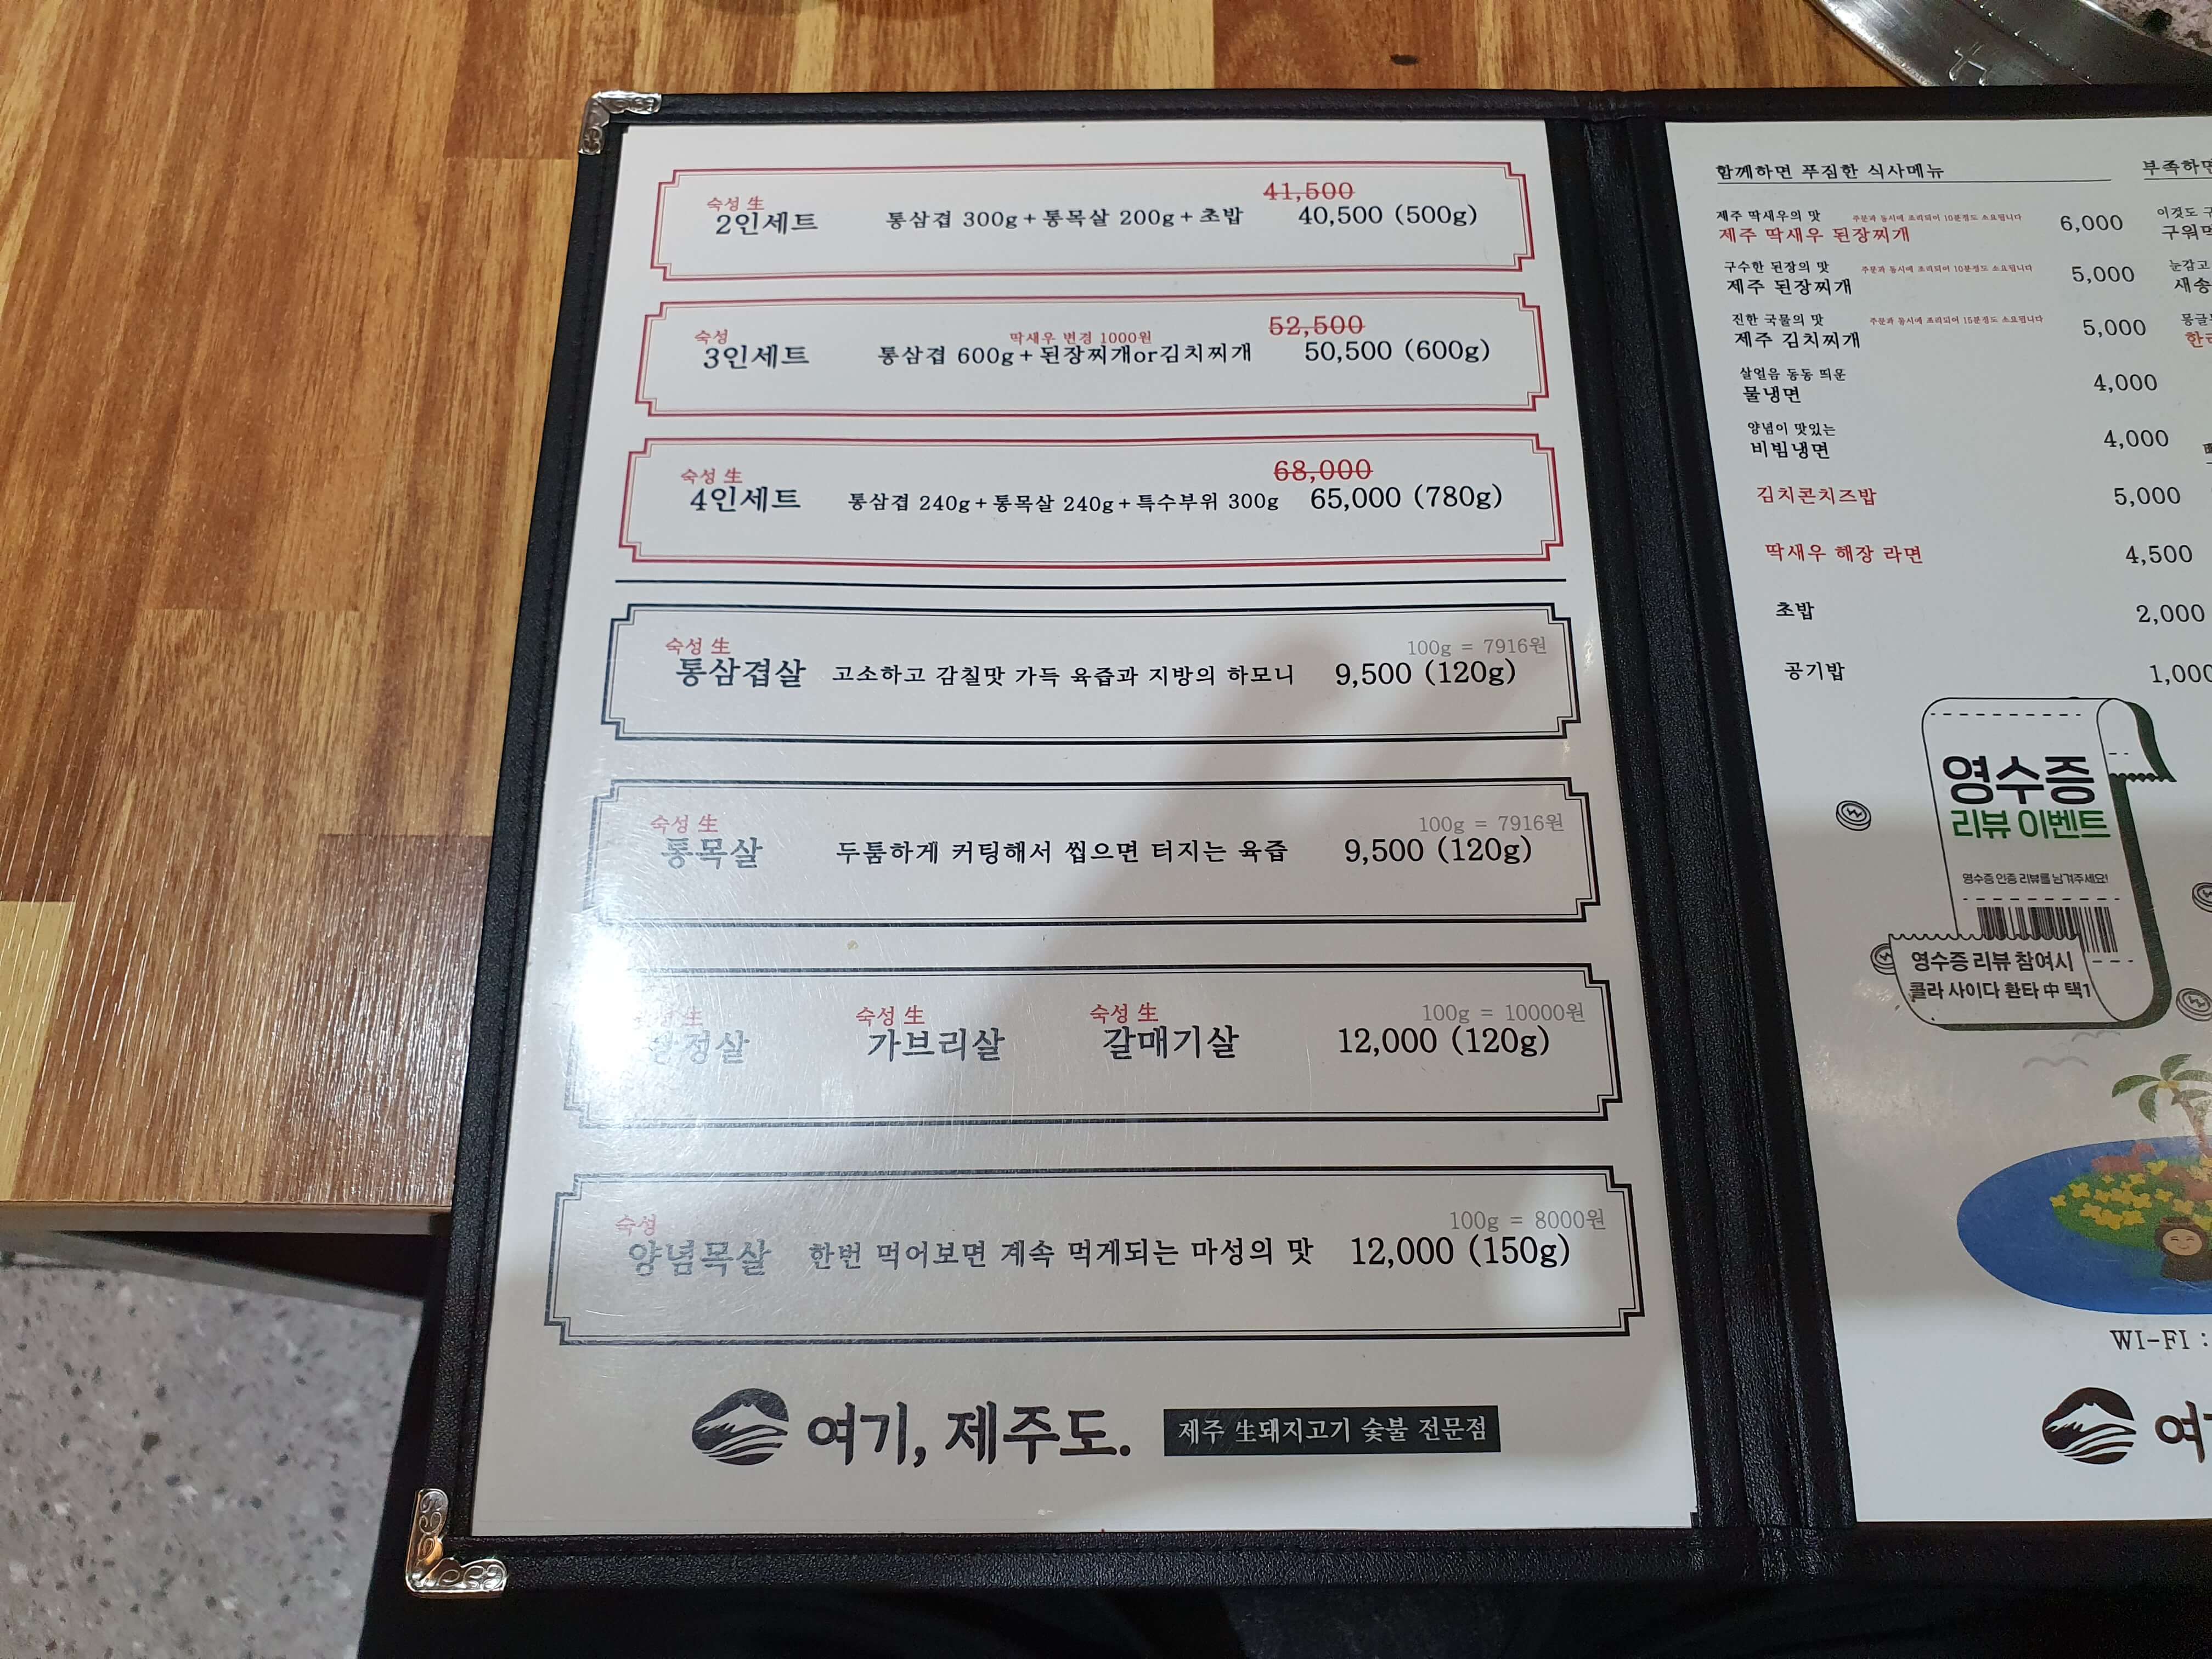 숙성 生
2인세트
통삼겹 300g+통목살 200g+초밥
41,500
40,500 (500g)
숙성
3인세트
딱새우 변경 1000원
통삼겹 600g+된장찌개or김치찌개
52,500
50,500 (600g)
숙성 生
4인세트
통삼겹 240g+통목살 240g+특수부위 300g
68,000
65,000 (780g)
숙성 生
통삼겹살
고소하고 감칠맛 가득 육즙과 지방의 하모니
100g = 7916원
9,500 (120g)
숙성 生
통목살
두툼하게 커팅해서 씹으면 터지는 육즙
100g = 7916원
9,500 (120g)
숙성 生
가브리살
숙성 生
갈매기살
100g = 10000원
12,000 (120g)
숙성
양념목살
한번 먹어보면 계속 먹게되는 마성의 맛
100g = 8000원
12,000 (150g)
여기, 제주도.
제주 生돼지고기 숯불 전문점
함께하면 푸짐한 식사메뉴
제주 딱새우의 맛
주문과 동시에 조리되어 10분정도 소요됩니다
제주 딱새우 된장찌개
6,000
구수한 된장의 맛
주문과 동시에 조리되어 10분정도 소요됩니다
제주 된장찌개
5,000
진한 국물의 맛
주문과 동시에 조리되어 15분정도 소요됩니다
제주 김치찌개
5,000
살얼음 동동 띄운
물냉면
4,000
양념이 맛있는
비빔냉면
4,000
김치콘치즈밥
5,000
딱새우 해장 라면
4,500
초밥
2,000
공기밥
1,000
부족하면
이것도
눈감고
영수증
리뷰 이벤트
영수증 인증 리뷰를 남겨주세요!
영수증 리뷰 참여시
콜라 사이다 환타 中 택1
WI-FI :